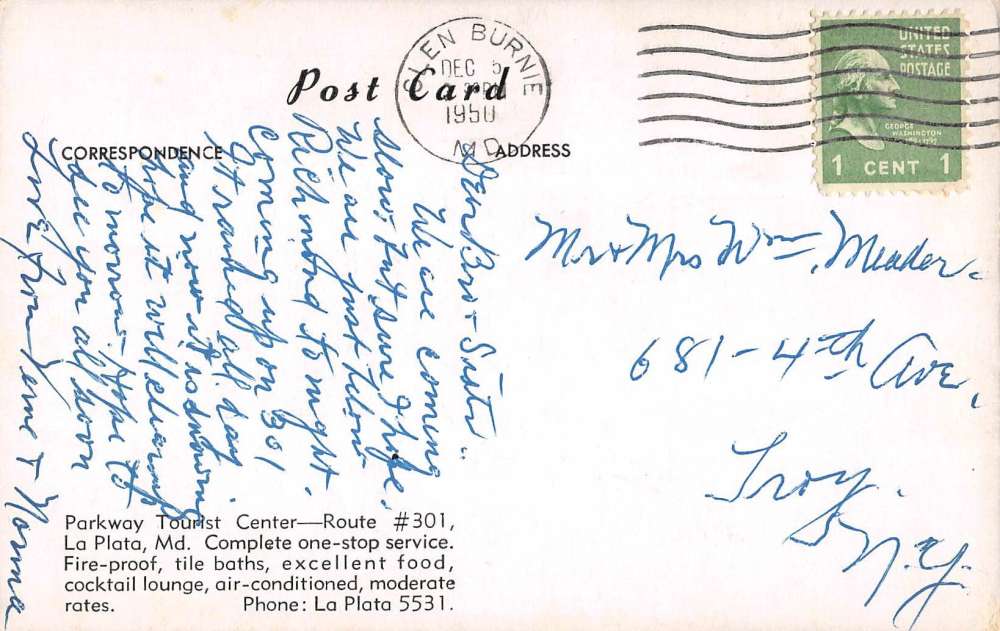 Post Card
GLEN BURNIE
DEC 5
1950
MD.
UNITED
STATES
POSTAGE
GEORGE
WASHINGTON
1 CENT 1
CORRESPONDENCE
ADDRESS
Dear Bro + Sister..
We are coming
slow but sure I hope.
We are just below
Richmond to night.
Coming up on 301
It rained all day
and now it is
hope it will clear up
to morrow. Hope to
see you all soon
Love from Verne + Norma
Mr + Mrs Wm. Meader.
681-4th Ave,
Troy.
N.Y.
Parkway Tourist Center—Route #301,
La Plata, Md. Complete one-stop service.
Fire-proof, tile baths, excellent food,
cocktail lounge, air-conditioned, moderate
rates. Phone: La Plata 5531.